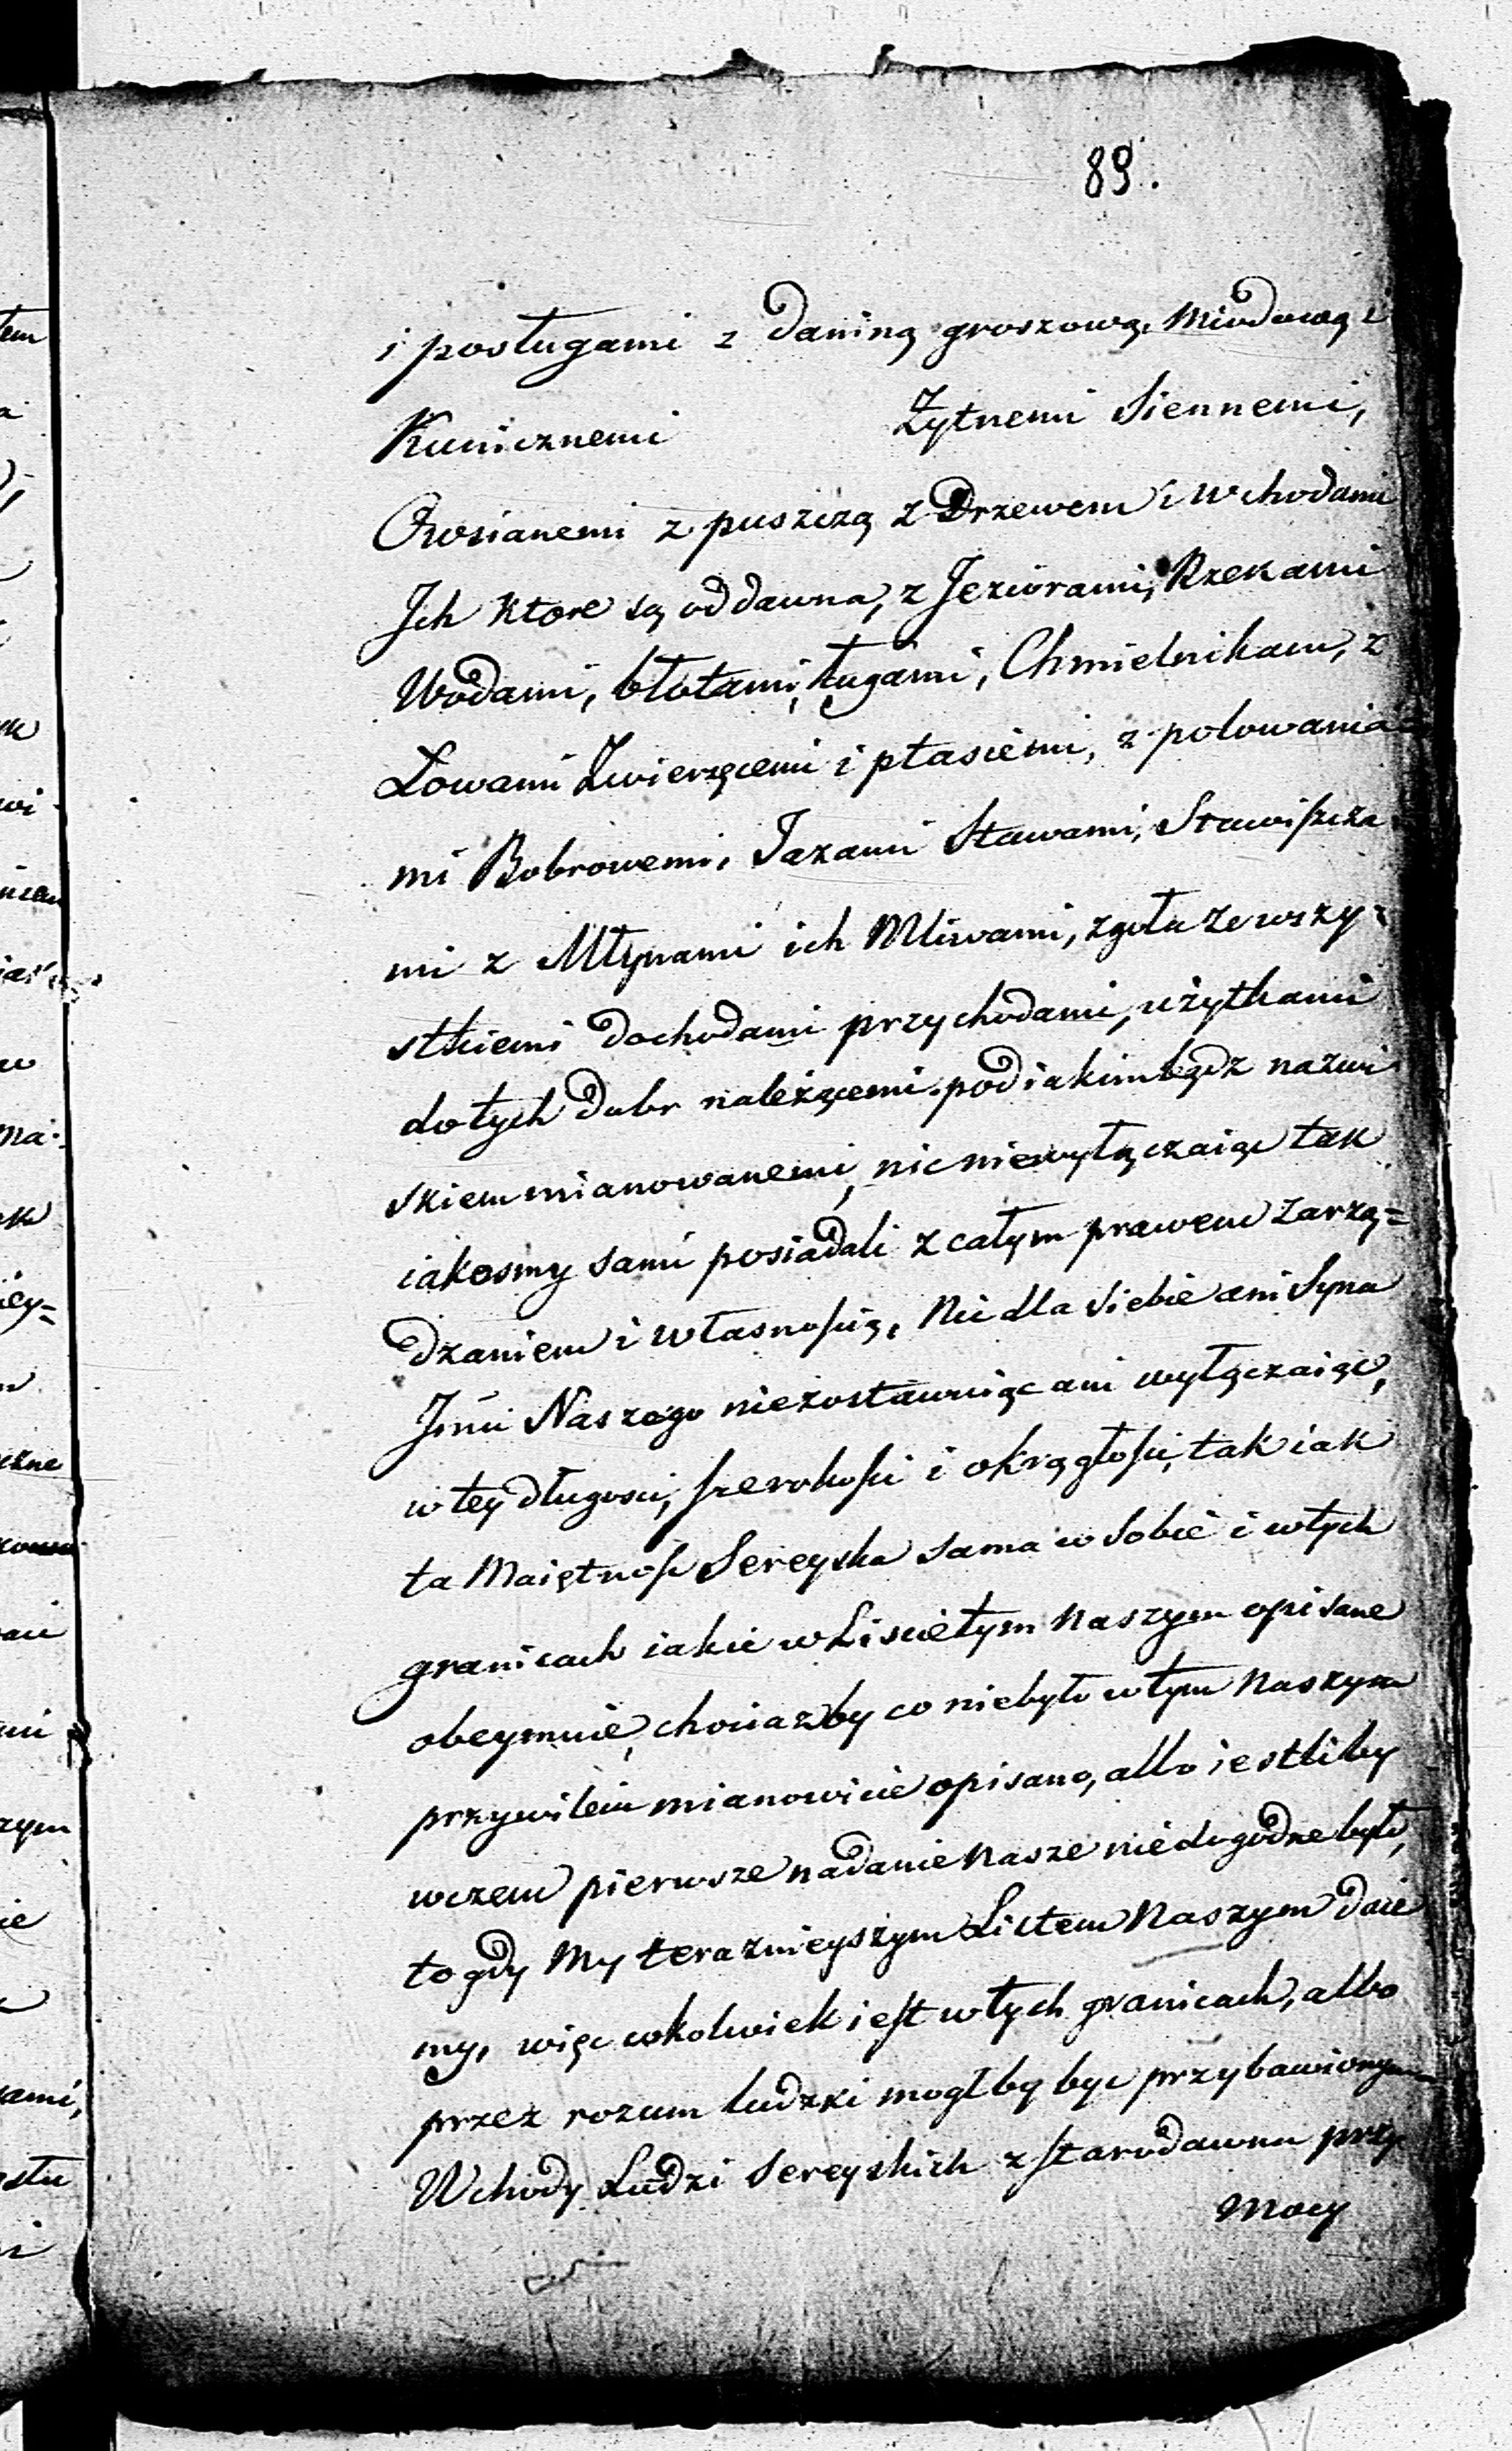 89.
i posługami z daniną groszową, miodową i
Kunicznemi Zytnemi Siennemi,
Owsianemi z puszczą z Drzewem i Wchodami
Jch ktore są oddawna, z Jeziorami, Rzekami
Wodami, błotami, ługami, Chmielnikam, z
Łowami Zwierzęcemi i ptasiemi, z polowania
mi Bobrowemi, Jazami Stawami, Stawiszcza
mi z Młynami ich Mliwami, zgoła ze wszy=
stkiemi dochodami przychodami, użytkami
do tych dobr należącemi. pod iakimbądz nazwi
skiem mianowanemi, nic niewyłączaiąc tak
iakosmy sami posiadali z całym prawem zarzą=
dzaniem i własnością, Nic dla Siebie ani Syna
Jmci Naszego niezostawuiąc ani wyłączaiąc,
w tey długosci, szerokości i okrągłości, tak iak
ta Maiętność Sereyska sama w Sobie i w tych
granicach iakie w Liscie tym Naszym opisane
obeymuie, chociazby co niebyło w tym Naszym
przywileiu mianowicie opisano, albo iestliby
wczem pierwsze nadanie Nasze niedogodne było,
to gdy My teraznieyszym Listem Naszym daie
my, więc cokolwiek iest w tych granicach, albo
przez rozum ludzki mogłby byc przybawionym
Wchody Ludzi Sereyskich z starodawna przy
Mocy